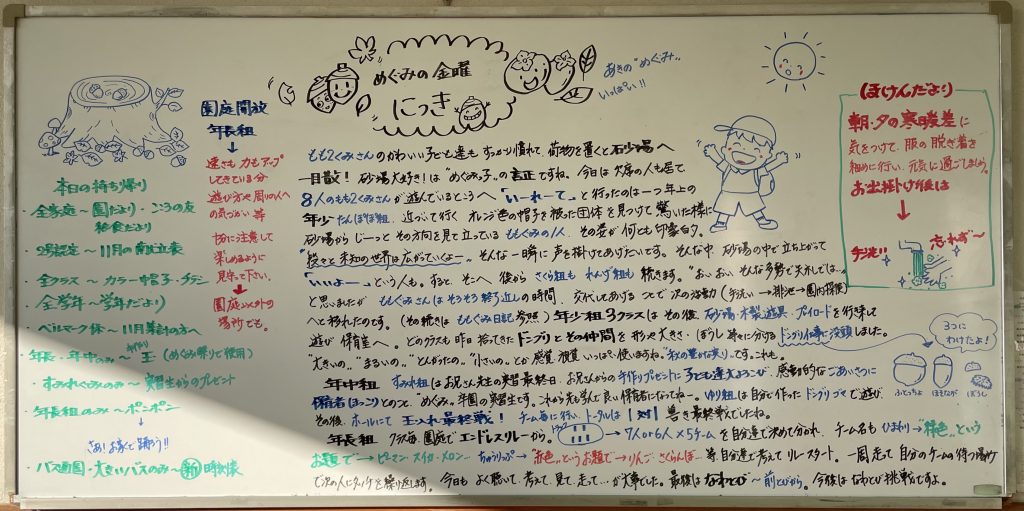 めぐみの金曜
にっき
あきの"めぐみ"
いっぱい!!
園庭開放
年長組
速さも力もアップ
してきている分
遊び方や周りの人へ
の気づかい等
十分に注意して
楽しめるように
見守って下さい。
園庭以外の
場所でも。
本日の持ち帰り
・全家庭〜園だより・こころの友
給食だより
・2号認定〜11月の献立表
・全クラス〜カラー帽子・チラシ
・全学年〜学年だより
・ベルマーク係〜11月集計の方へ
・年長・年中のみ〜手作り王(めぐみ祭りで使用)
・すみれぐみのみ〜実習生からのプレゼント
・年長組のみ〜ポンポン
さぁ!お家で踊ろう!!
・バス通園・大きいバスのみ〜新時刻表
もも2くみさんのかわいい子ども達も すっかり慣れて、荷物を置くと砂場へ
一目散!砂場大好き!は"めぐみっ子"の証ですね。今日は欠席の人も居て
8人のもも2くみが遊んでいるところへ「いーれーて」と行ったのは一つ年上の
年少たんぽぽ組。近づいて行く オレンジ色の帽子を被った団体を見つけて 驚いた様に
砂場からじーっとその方向を見て立っている ももくみの1人、その姿が何とも印象的。
"段々と未知の世界は広がっていくよー"そんな一瞬に声を掛けてあげたいです。そんな中、砂場の中で立ち上がって
"いいよー"という人も。すると、そこへ 後から さくら組も れんげ組も 続きます。"おいおい そんな多勢で大丈夫では…"
と思いましたが ももぐみさんは そろそろ終了近しの時間、交代してあげる つもりで次の活動(手洗い→排泄→園内探検)
へと移れたのです。(その続きは ももぐみ日記参照)年少組3クラスは その後、砂場・木製遊具・プレイロードを行き来して
遊び 保育室へ。どのクラスも昨日拾ってきたドングリとその仲間を 形や大きさ・ぼうし等々に分ける ドングリ仕事に没頭しました。
"大きいの" "まるいの" "とんがったの" "小さいの"とか 感覚・視覚いっぱい使いますね。"秋の豊かな実り"です。これも。
年中組 すみれ組はお兄さん先生の実習最終日、お兄さんからの手作りプレゼントに子ども達大よろこび 感動的な ごあいさつに
保育者ほっこりとのこと。"めぐみ"卒園の実習生です。これから先も学んで良い保育者になってねー。ゆり組は自分で作ったドングリゴマで遊び、
その後、ホールにて 玉入れ最終戦!チーム毎に行い、トータルは 1対1 善き最終戦でしたね。
年長組 クラス毎、園庭で エンドレスリレーから。トラック→7人or6人×5チームを自分達で決めて分かれ、チーム名も ひまわり→緑色"という
お題で→ピーマン・スイカ・メロン… ちゅうりっぷ→"赤色"というお題で→りんご・さくらんぼ…等、自分達で考えて リレースタート。一周走って 自分のチームの待つ場所
で次の人にタッチを繰り返します。今日も よく聴いて、考えて、見て、走って…が大事でした。最後はなわとび〜前とびから。今後はなわとび挑戦ですよ。
(ほけんだより)
朝・夕の寒暖差に
気をつけて、服の脱ぎ着を
細めに行い、元気に過ごしましょう。
お出掛け後は
手洗い
忘れず〜
3つに
わけたよ!
ふとっちょ
ほそなが
ぼうし